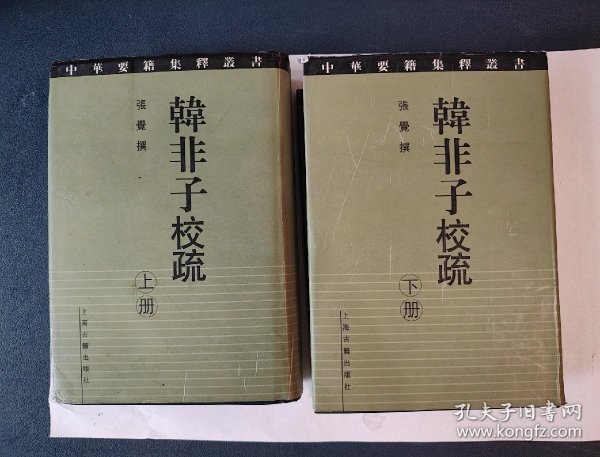 中華要籍集釋叢書
韓非子校疏
張覺撰
上册
上海古籍出版社
中華要籍集釋叢書
韓非子校疏
張覺撰
下册
上海古籍出版社
孔夫子旧书网
www.kongfz.com